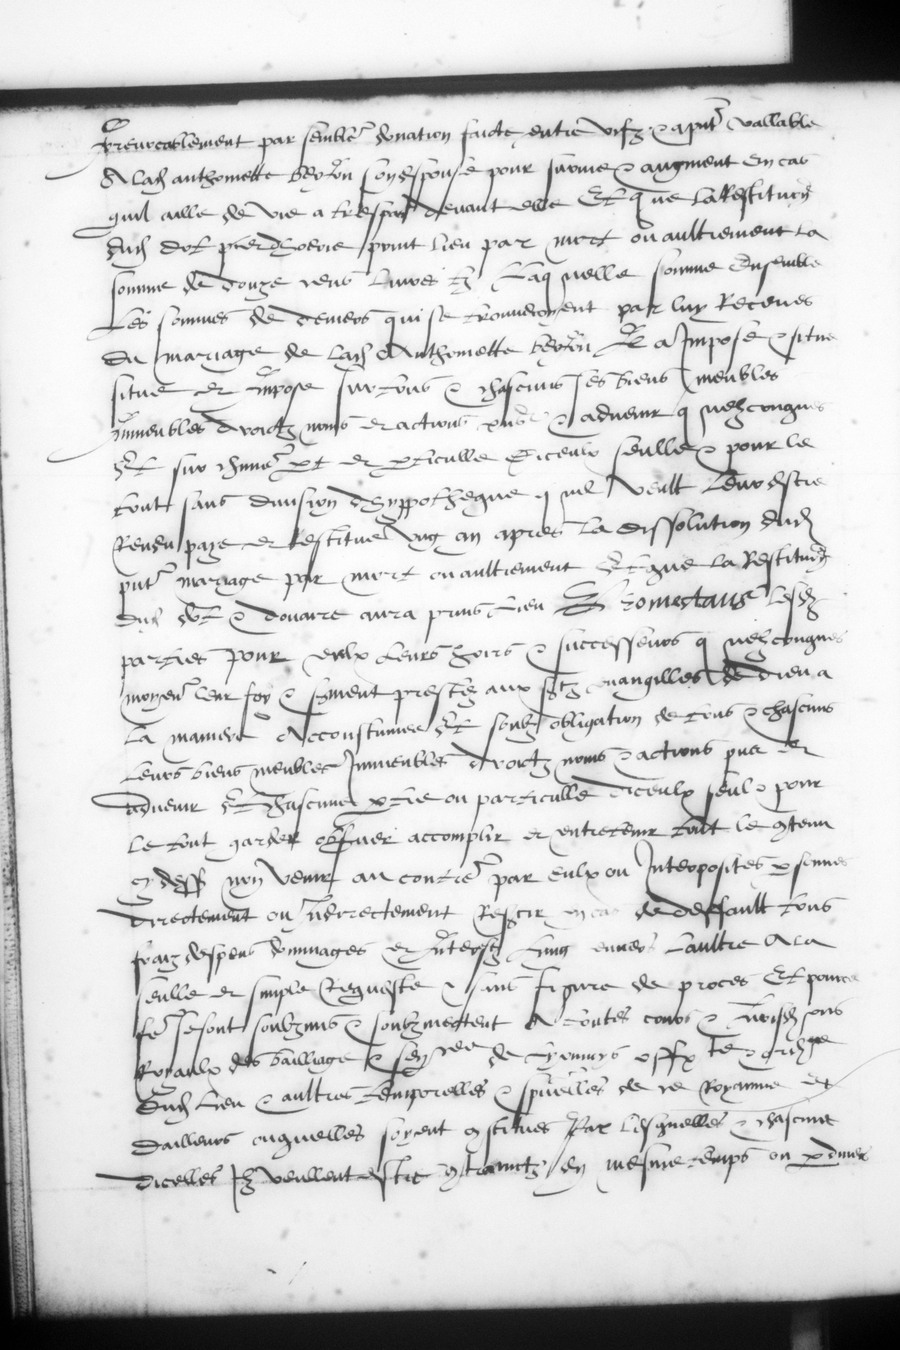 Irrevocablement par semble donation faicte entre vifz & a put vallable
A lad anthomette son espouse pour survie & augment En cas
quil aille de vie a trespas devant elle Et que la Restitucion
dud dot print lieu par mort ou aultrement La
somme de douze cens livres tz Laquelle somme Ensemble
Les sommes de deniers qui se trouveroyent par luy Receues
du mariage de lad Anthomette a Impose & situe
situe et Impose sur tous & chascuns ses biens meubles
Immeubles droictz noms et actions & advenir quelzconques
Et sur et particulle diceulx seulle & pour le
tout sans division dhyppotheque quil veult Leur estre
Rendu paye et Restitue ung an apres La dissolution dud
put mariage par mort ou aultrement Et que la Restitucion
dud dot & douaire aura prins Lieu Promectans lesd
parties pour eulx Leurs hoirs & successeurs quelzconques
moyen leur foy & serment prestez aux evangilles de dieu a
La maniere Accoustumee Et soubz obligation de tous & chascuns
Leurs biens meubles Immeubles droictz noms & actions et
advenir Et chascune ou particulle diceulx seul & pour
Le tout garder observer accomplir et entretenir tout le contenu
cy dess non venir au contre par eulx ou Interposites personnes
directement ou Indirectement en cas de deffault tous
fraiz despens dommages et Interestz Lung envers Laultre A La
seulle et simple Requeste & sans figure de proces Et pour ce
fe se sont soubzmis & soubzmectent A toutes cours
Royaulx des bailliage & de Lyonnoys
dud Lieu & aultres temporelles & spuelles de ce Royaume et
dailleurs ou quelles soyent constitues Par lesquelles & chascune
dicelles Ilz veullent estre contrainctz en mesme temps ou